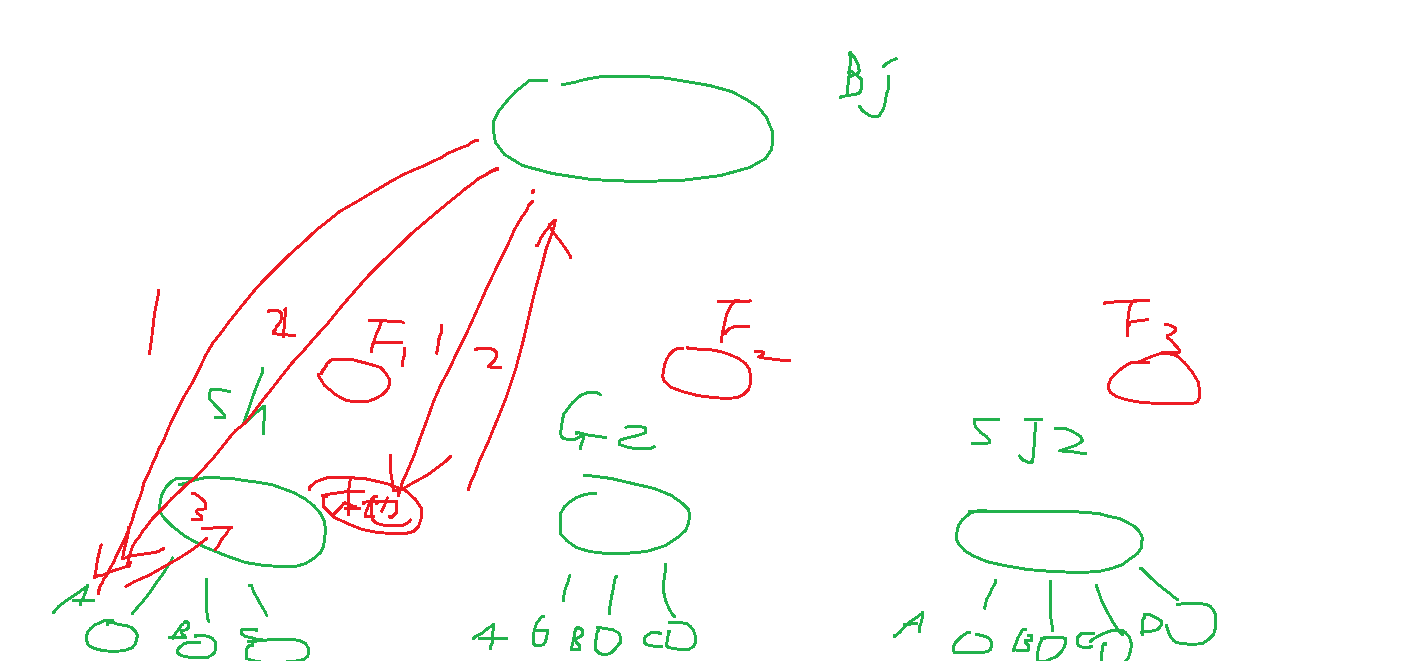 Bj
1
2
F1
1
2
F2
F3
G2
SJ2
3
A
B
A
B
C
A
B
C
D